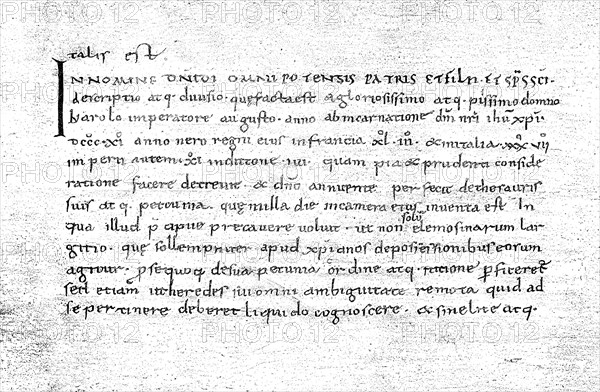 talis est
IN NOMINE DNI DI OMNIPOTENTIS PATRIS ET FILII. ET SPS SCI.
descriptio atq. diuisio. que facta est a gloriosissimo atq. piissimo domno
karolo imperatore augusto. anno ab incarnatione dni nri ihu xpi.
DCCC. XI. anno uero regni eius in francia XL. III. & in italia. XXX VII
imperii autem. XI indictione. IIII. quam pia & prudenti conside
ratione facere decreuit. & dno annuente perfecit de thesauris
suis atq. pecunia. que illa die in camera eius inuenta est In
qua illud p̄cipue precauere uoluit. ut non solū elemosinarum lar
gitio. que sollempniter apud xpianos de possessionibus eorum
agitur. p se quoq. de sua pecunia ordine atq. ratione pficeret
sed etiam ut heredes sui omni ambiguitate remota quid ad
se pertinere deberet liquido cognoscere. & sine lite atq.
PHOTO12